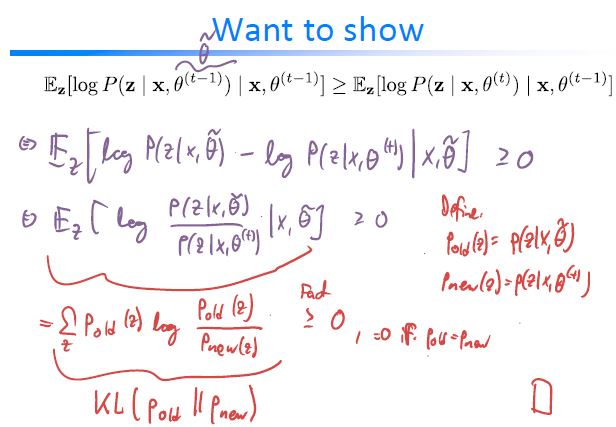 Want to show
θ̃
𝔼_z[log P(z | x, θ^(t−1)) | x, θ^(t−1)] ≥ 𝔼_z[log P(z | x, θ^(t)) | x, θ^(t−1)]
⇔ 𝔼_z[log P(z|x,θ̃) − log P(z|x,θ^(t)) | x,θ̃] ≥ 0
⇔ 𝔼_z[log P(z|x,θ̃) / P(z|x,θ^(t)) | x,θ̃] ≥ 0
Define.
P_old(z) = P(z|x,θ̃)
P_new(z) = P(z|x,θ^(t))
= Σ_z P_old(z) log P_old(z) / P_new(z) ≥ 0 , =0 iff P_old = P_new
Fact
KL(P_old || P_new)